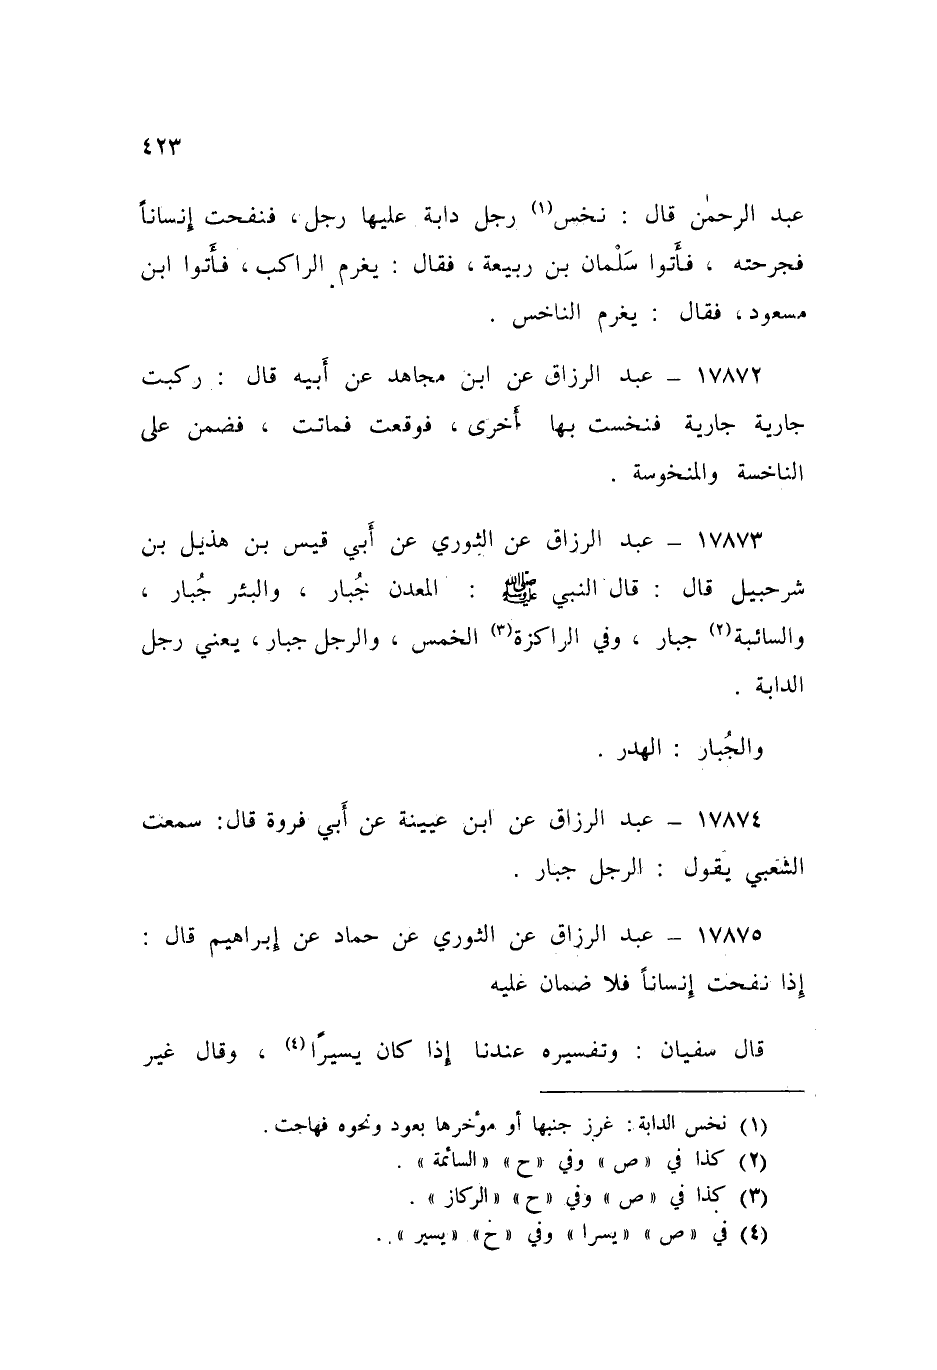 ٤٢٣
عبد الرحمٰن قال : نخس(١) رجل دابة عليها رجل ، فنفحت إنساناً
فجرحته ، فأتوا سَلْمان بن ربيعة ، فقال : يغرم الراكب ، فأتوا ابن
مسعود ، فقال : يغرم الناخس .
١٧٨٧٢ – عبد الرزاق عن ابن مجاهد عن أبيه قال : ركبت
جارية جارية فنخست بها أخرى ، فوقعت فماتت ، فضمن على
الناخسة والمنخوسة .
١٧٨٧٣ – عبد الرزاق عن الثوري عن أبي قيس بن هذيل بن
شرحبيل قال : قال النبي ﷺ : المعدن جُبار ، والبئر جُبار ،
والسائبة(٢) جبار ، وفي الراكزة(٣) الخمس ، والرجل جبار ، يعني رجل
الدابة .
والجُبار : الهدر .
١٧٨٧٤ – عبد الرزاق عن ابن عيينة عن أبي فروة قال : سمعت
الشعبي يقول : الرجل جبار .
١٧٨٧٥ – عبد الرزاق عن الثوري عن حماد عن إبراهيم قال :
إذا نفحت إنساناً فلا ضمان عليه
قال سفيان : وتفسيره عندنا إذا كان يسيرًا(٤) ، وقال غير
(١) نخس الدابة : غرز جنبها أو مؤخرها بعود ونحوه فهاجت .
(٢) كذا في « ص » وفي « ح » « السائمة » .
(٣) كذا في « ص » وفي « ح » « الركاز » .
(٤) في « ص » « يسرا » وفي « ح » « يسير » .